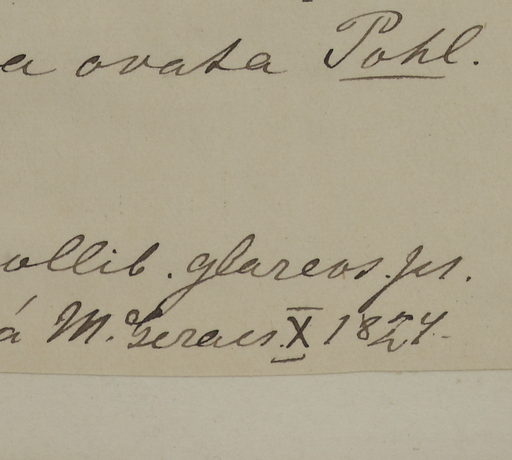 a ovata Pohl.
ollib. glareos. pr.
á M. Geraes. X 1824.